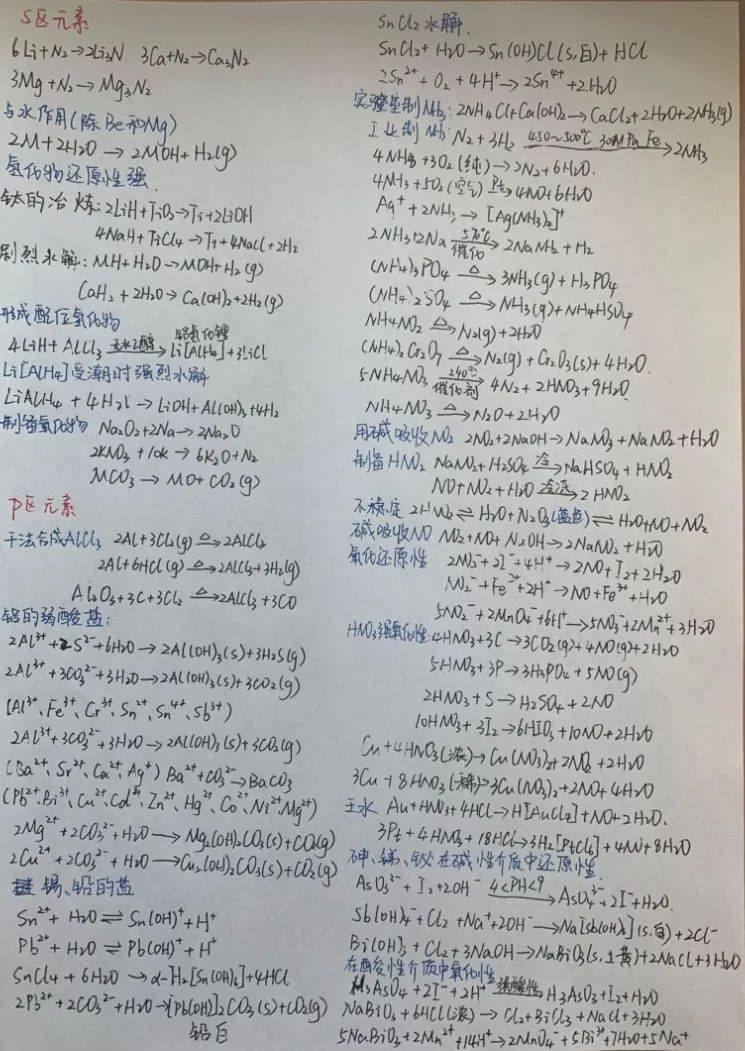 S区元素
6Li+N₂→2Li₃N 3Ca+N₂→Ca₃N₂
3Mg+N₂→Mg₃N₂
与水作用(除Be和Mg)
2M+2H₂O→2MOH+H₂(g)
氢化物还原性强
钛的冶炼:2LiH+TiO₂→Ti+2LiOH
4NaH+TiCl₄→Ti+4NaCl+2H₂
剧烈水解:MH+H₂O→MOH+H₂(g)
CaH₂+2H₂O→Ca(OH)₂+2H₂(g)
形成配位氢化物
4LiH+AlCl₃ 无水乙醚→ Li[AlH₄]+3LiCl 铝氢化锂
Li[AlH₄]受潮时强烈水解
LiAlH₄+4H₂O→LiOH+Al(OH)₃+4H₂
Na₂O₂+2Na→2Na₂O
2KNO₃+10K→6K₂O+N₂
MCO₃→MO+CO₂(g)
P区元素
干法合成AlCl₃ 2Al+3Cl₂(g) △→2AlCl₃
2Al+6HCl(g) △→2AlCl₃+3H₂(g)
Al₂O₃+3C+3Cl₂ △→2AlCl₃+3CO
铝的弱酸盐:
2Al³⁺+3S²⁻+6H₂O→2Al(OH)₃(s)+3H₂S(g)
2Al³⁺+3CO₃²⁻+3H₂O→2Al(OH)₃(s)+3CO₂(g)
(Al³⁺、Fe³⁺、Cr³⁺、Sn²⁺、Sn⁴⁺、Sb³⁺)
2Al³⁺+3CO₃²⁻+3H₂O→2Al(OH)₃(s)+3CO₂(g)
(Ba²⁺、Sr²⁺、Ca²⁺、Ag⁺) Ba²⁺+CO₃²⁻→BaCO₃
(Pb²⁺、Bi³⁺、Cu²⁺、Cd²⁺、Zn²⁺、Hg²⁺、Co²⁺、Ni²⁺、Mg²⁺)
2Mg²⁺+2CO₃²⁻+H₂O→Mg₂(OH)₂CO₃(s)+CO₂(g)
2Cu²⁺+2CO₃²⁻+H₂O→Cu₂(OH)₂CO₃(s)+CO₂(g)
锡、铅的盐
Sn²⁺+H₂O⇌Sn(OH)⁺+H⁺
Pb²⁺+H₂O⇌Pb(OH)⁺+H⁺
SnCl₄+6H₂O→α-H₂[Sn(OH)₆]+4HCl
2Pb²⁺+2CO₃²⁻+H₂O→[Pb(OH)]₂CO₃(s)+CO₂(g)
铅白
SnCl₂水解.
SnCl₂+H₂O→Sn(OH)Cl(s,白)+HCl
2Sn²⁺+O₂+4H⁺→2Sn⁴⁺+2H₂O
实验室制NH₃:2NH₄Cl+Ca(OH)₂→CaCl₂+2H₂O+2NH₃(g)
工业制NH₃:N₂+3H₂ 450~500℃ 30MPa Fe→2NH₃
4NH₃+3O₂(纯)→2N₂+6H₂O.
4NH₃+5O₂(空气) Pt→4NO+6H₂O
Ag⁺+2NH₃→[Ag(NH₃)₂]⁺
2NH₃+2Na 570℃ 催化→2NaNH₂+H₂
(NH₄)₃PO₄ △→3NH₃(g)+H₃PO₄
(NH₄)₂SO₄ △→NH₃(g)+NH₄HSO₄
NH₄NO₂ △→N₂(g)+2H₂O
(NH₄)₂Cr₂O₇ △→N₂(g)+Cr₂O₃(s)+4H₂O.
5NH₄NO₃ 240℃ 催化剂→4N₂+2HNO₃+9H₂O
NH₄NO₃ △→N₂O+2H₂O
用碱吸收NO₂ 2NO₂+2NaOH→NaNO₃+NaNO₂+H₂O
制备HNO₂ NaNO₂+H₂SO₄ 冷→NaHSO₄+HNO₂
NO+NO₂+H₂O 冷冻→2HNO₂
不稳定 2HNO₂⇌H₂O+N₂O₃(蓝色)⇌H₂O+NO+NO₂
碱吸收NO NO₂+NO+NaOH→2NaNO₂+H₂O
氧化还原性 2NO₂⁻+2I⁻+4H⁺→2NO+I₂+2H₂O
NO₂⁻+Fe²⁺+2H⁺→NO+Fe³⁺+H₂O
5NO₂⁻+2MnO₄⁻+6H⁺→5NO₃⁻+2Mn²⁺+3H₂O
HNO₃强氧化性:4HNO₃+3C→3CO₂(g)+4NO(g)+2H₂O
5HNO₃+3P→3H₃PO₄+5NO(g)
2HNO₃+S→H₂SO₄+2NO
10HNO₃+3I₂→6HIO₃+10NO+2H₂O
Cu+4HNO₃(浓)→Cu(NO₃)₂+2NO₂+2H₂O
3Cu+8HNO₃(稀)→3Cu(NO₃)₂+2NO+4H₂O
王水 Au+HNO₃+4HCl→H[AuCl₄]+NO+2H₂O.
3Pt+4HNO₃+18HCl→3H₂[PtCl₆]+4NO+8H₂O
砷、锑、铋在碱性介质中还原性.
AsO₃³⁻+I₂+2OH⁻ 4<PH<9→AsO₄³⁻+2I⁻+H₂O.
Sb(OH)₄⁻+Cl₂+Na⁺+2OH⁻→Na[Sb(OH)₆](s,白)+2Cl⁻
Bi(OH)₃+Cl₂+3NaOH→NaBiO₃(s,土黄)+2NaCl+3H₂O
在酸性介质中氧化性
H₃AsO₄+2I⁻+2H⁺ 强酸性→H₃AsO₃+I₂+H₂O
NaBiO₃+6HCl(浓)→Cl₂+BiCl₃+NaCl+3H₂O
5NaBiO₃+2Mn²⁺+14H⁺→2MnO₄⁻+5Bi³⁺+7H₂O+5Na⁺